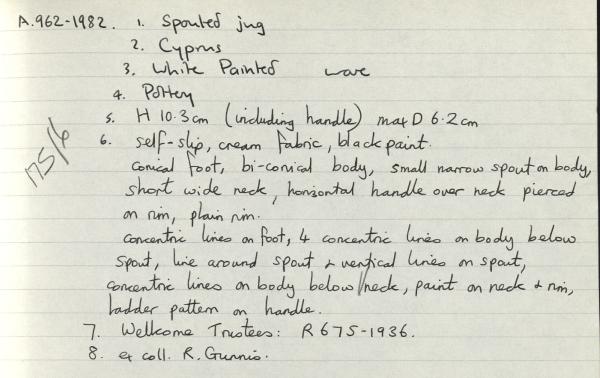 A.962-1982. 1. Spouted jug
2. Cyprus
3. White Painted ware
4. Pottery
5. H 10.3cm (including handle) max D 6.2cm
6. self-slip, cream fabric, black paint.
Conical foot, bi-conical body, small narrow spout on body,
short wide neck, horizontal handle over neck pierced
on rim, plain rim.
Concentric lines on foot, 4 concentric lines on body below
spout, line around spout & vertical lines on spout,
concentric lines on body below neck, paint on neck & rim,
ladder pattern on handle.
7. Wellcome Trustees: R675-1936.
8. ex coll. R. Gunnis.